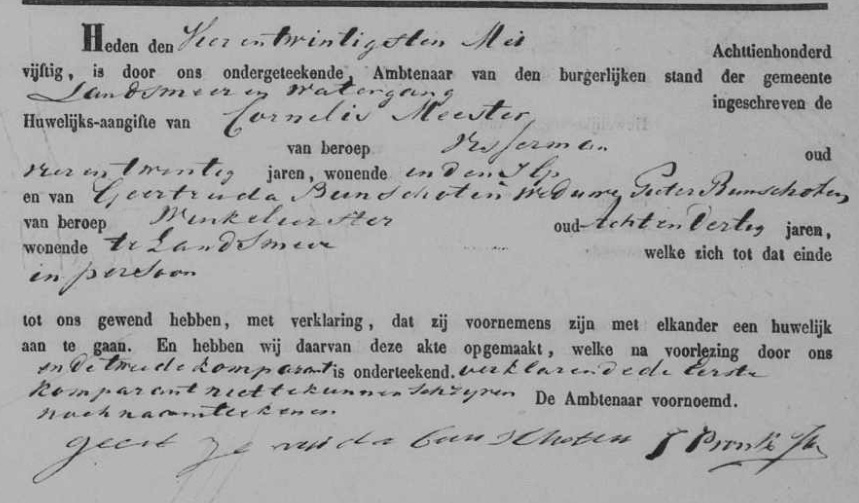 Heden den Vier en twintigsten Mei Achttienhonderd
vijftig, is door ons ondergeteekende, Ambtenaar van den burgerlijken stand der gemeente
Landsmeer en Watergang ingeschreven de
Huwelijks-aangifte van Cornelis Meester,
van beroep Visserman oud
vier en twintig jaren, wonende in den Ilp
en van Geertruda Bunschoten Weduwe Pieter Bunschoten
van beroep Winkelier ster oud Acht en Dertig jaren,
wonende te Landsmeer welke zich tot dat einde
in persoon
tot ons gewend hebben, met verklaring, dat zij voornemens zijn met elkander een huwelijk
aan te gaan. En hebben wij daarvan deze akte opgemaakt, welke na voorlezing door ons
en de tweede komparant is onderteekend. verklarende de Eerste
komparant niet te kunnen schryven De Ambtenaar voornoemd.
noch naamteekenen
geert ruida Bunschoten Pronk